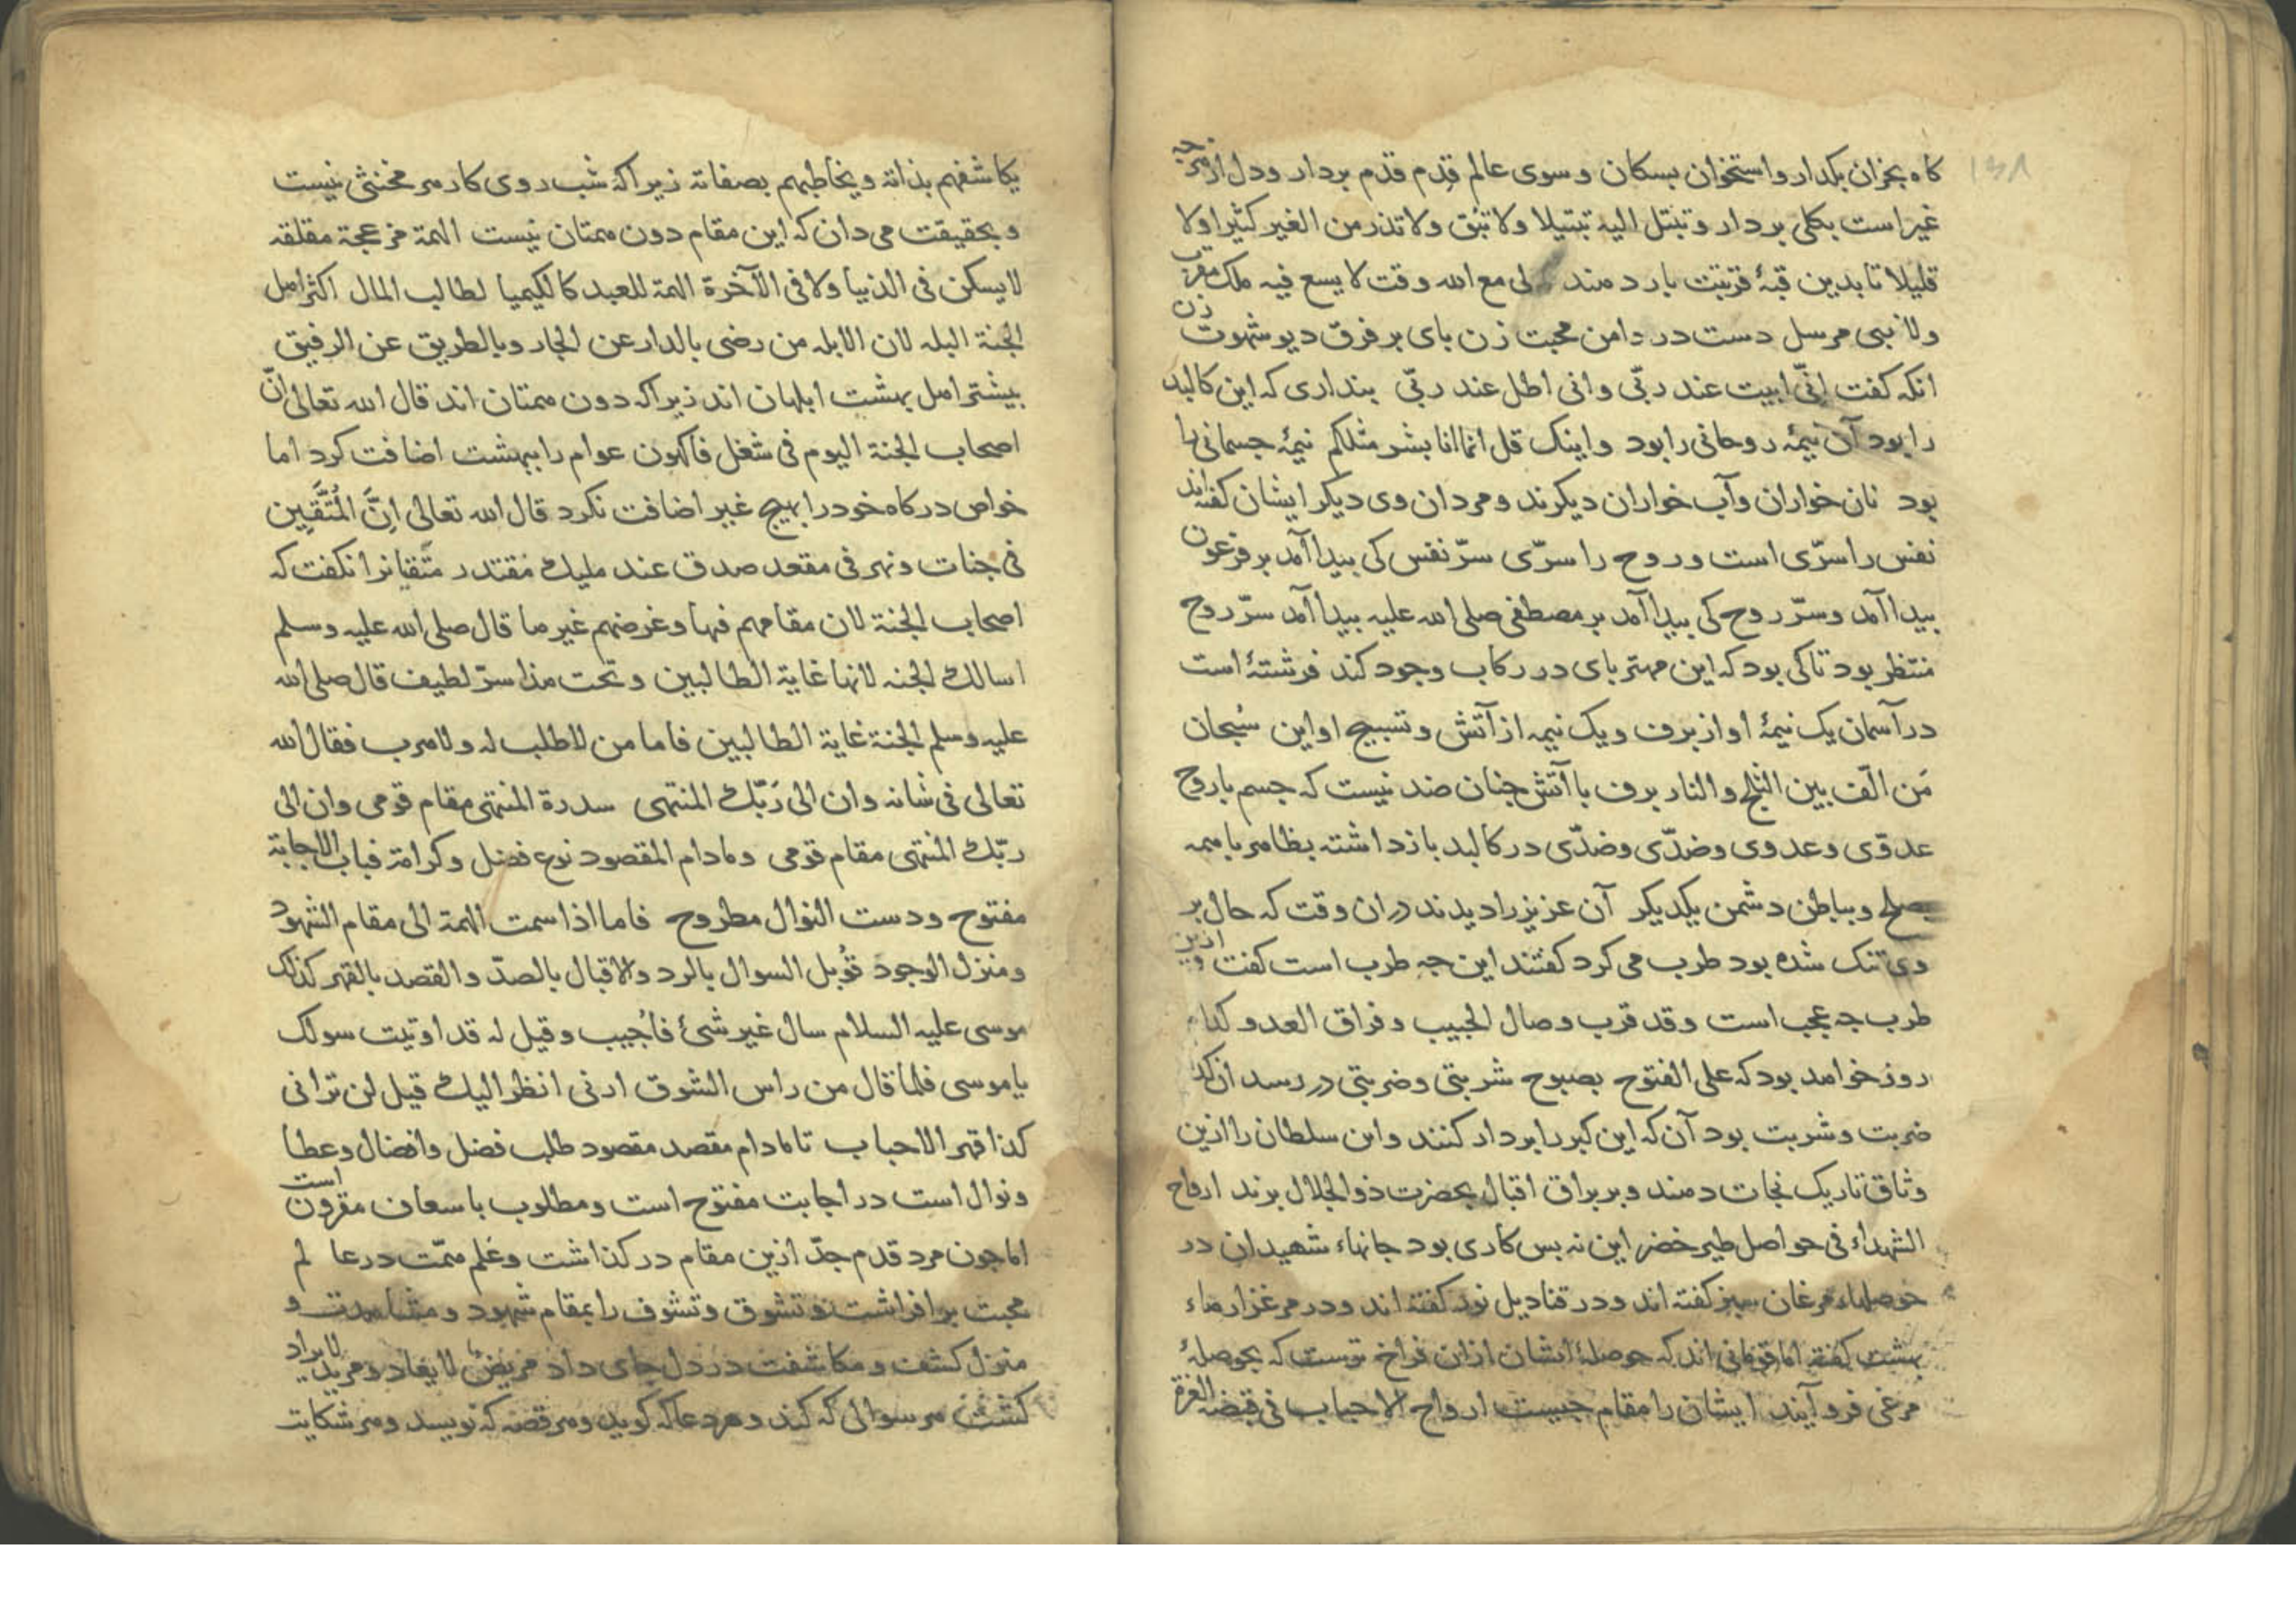 ۱۳۸
کاه بخران بکدار واستخوان بسکان و سوی عالم قدم قدم بردار ودل از هرچه
غیر است بکلی بردار وتبتل الیه تبتیلا ولا تبق ولا تذر من الغیر کثیرا ولا
قلیلا تا بدین قبهٔ قربتت بار دهند لی مع الله وقت لا یسع فیه ملک مقرب
ولا نبی مرسل دست در دامن محبت زن بای بر فرق دیو شهوت زن
انکه کفت انّی ابیت عند ربّی وانی اظل عند ربّی بنداری که این کالبد
را بود آن نیمهٔ روحانی را بود واینک قل انما انا بشر مثلکم نیمهٔ جسمانی را
بود نان خواران وآب خواران دیکرند ومردان وی دیکر ایشان کفته اند
نفس را سرّی است وروح را سرّی سرّ نفس کی بیدا آمد بر فرعون
بیدا آمد وسرّ روح کی بیدا آمد بر مصطفی صلی الله علیه بیدا آمد سرّ روح
منتظر بود تا کی بود که این مهتر بای در رکاب وجود کند فرشتهٔ است
در آسمان یک نیمهٔ او از برف ویک نیمه از آتش وتسبیح او این سُبحان
مَن الّف بین الثلج والنار برف با آتش جنان ضد نیست که جسم با روح
عدوّی وعدوی وضدّی وضدّی در کالبد باز داشته بظاهر با همه
بصلح وبباطن دشمن یکدیکر آن عزیز را دیدند دران وقت که حال بر
وی تنک شده بود طرب می کرد کفتند این جه طرب است کفت ازین
طرب جه عجب است وقد قرب وصال الحبیب وفراق العدو کدام
روز خواهد بود که علی الفتوح بصبوح شربتی وضربتی در رسد ان کدام
ضربت وشربت بود آن که این کبر را بر دار کنند واین سلطان را ازین
وثاق تاریک نجات دهند وبر براق اقبال بحضرت ذو الجلال برند ارواح
الشهداء فی حواصل طیر خضر این نه بس کاری بود جانهاء شهیدان در
حوصلهاء مرغان سبز کفته اند ودر قنادیل نور کفته اند ودر مرغزارهاء
بهشت کفته اما قومانی اند که حوصلهٔ ایشان ازان فراخ ترست که بحوصلهٔ
مرغی فرو آیند ایشان را مقام جیست ارواح الاحباب فی قبضة العزة
یکاشفهم بذاته ویخاطبهم بصفاته زیرا که شب روی کار هر مخنثی نیست
وبحقیقت می دان که این مقام دون همتان نیست الهمة مزعجة مقلقه
لا یسکن فی الدنیا ولا فی الآخرة الهمة للعبد کالکیمیا لطالب المال اکثر اهل
الجنة البله لان الابله من رضی بالدار عن الجار وبالطریق عن الرفیق
بیشتر اهل بهشت ابلهان اند زیرا که دون همتان اند قال الله تعالی انّ
اصحاب الجنة الیوم فی شغل فاکهون عوام را ببهشت اضافت کرد اما
خواص درکاه خود را بهیج غیر اضافت نکرد قال الله تعالی اِنَّ المُتَّقین
فی جنات ونهر فی مقعد صدق عند ملیك مقتدر متّقیانرا نکفت که
اصحاب الجنة لان مقامهم فیها وغرضهم غیرها قال صلی الله علیه وسلم
اسالك الجنه لانها غایة الطالبین وتحت هذا سرّ لطیف قال صلی الله
علیه وسلم الجنة غایة الطالبین فاما من لا طلب له ولا هرب فقال الله
تعالی فی شانه وان الی رَبّك المنتهی سدرة المنتهی مقام قومی وان الی
ربّك المنتهی مقام قومی ومادام المقصود نوع فضل وکرامة فباب الاجابة
مفتوح ودست النوال مطروح فاما اذا سمت الهمة الی مقام الشهود
ومنزل الوجود قُوبل السوال بالرد والاقبال بالصدّ والقصد بالقهر کذلك
موسی علیه السلام سال غیر شیٔ فاُجیب وقیل له قد اوتیت سولك
یا موسی فلما قال من راس الشوق ارنی انظر الیك قیل لن ترانی
کذا قهر الاحباب تا مادام مقصد مقصود طلب فضل وافضال وعطا
ونوال است در اجابت مفتوح است ومطلوب باسعاف مقرون است
اما جون مرد قدم جدّ ازین مقام در کذاشت وعَلم همّت در عالم
محبت بر افراشت وتشوق وتشوف را بمقام شهود ومشاهدت و
منزل کشف ومکاشفت در دل جای داد مریضٌ لا یعاد ومریدٌ لا یراد
کشتن هر سوالی که کند وهر دعا که کوید وهر قصه که نویسد وهر شکایت